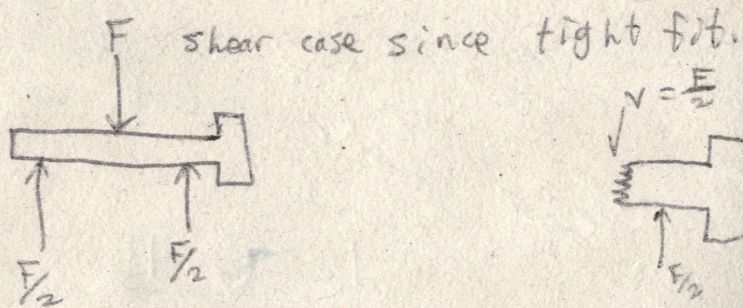 F shear case since tight fit.
V = F/2
F/2 F/2 F/2